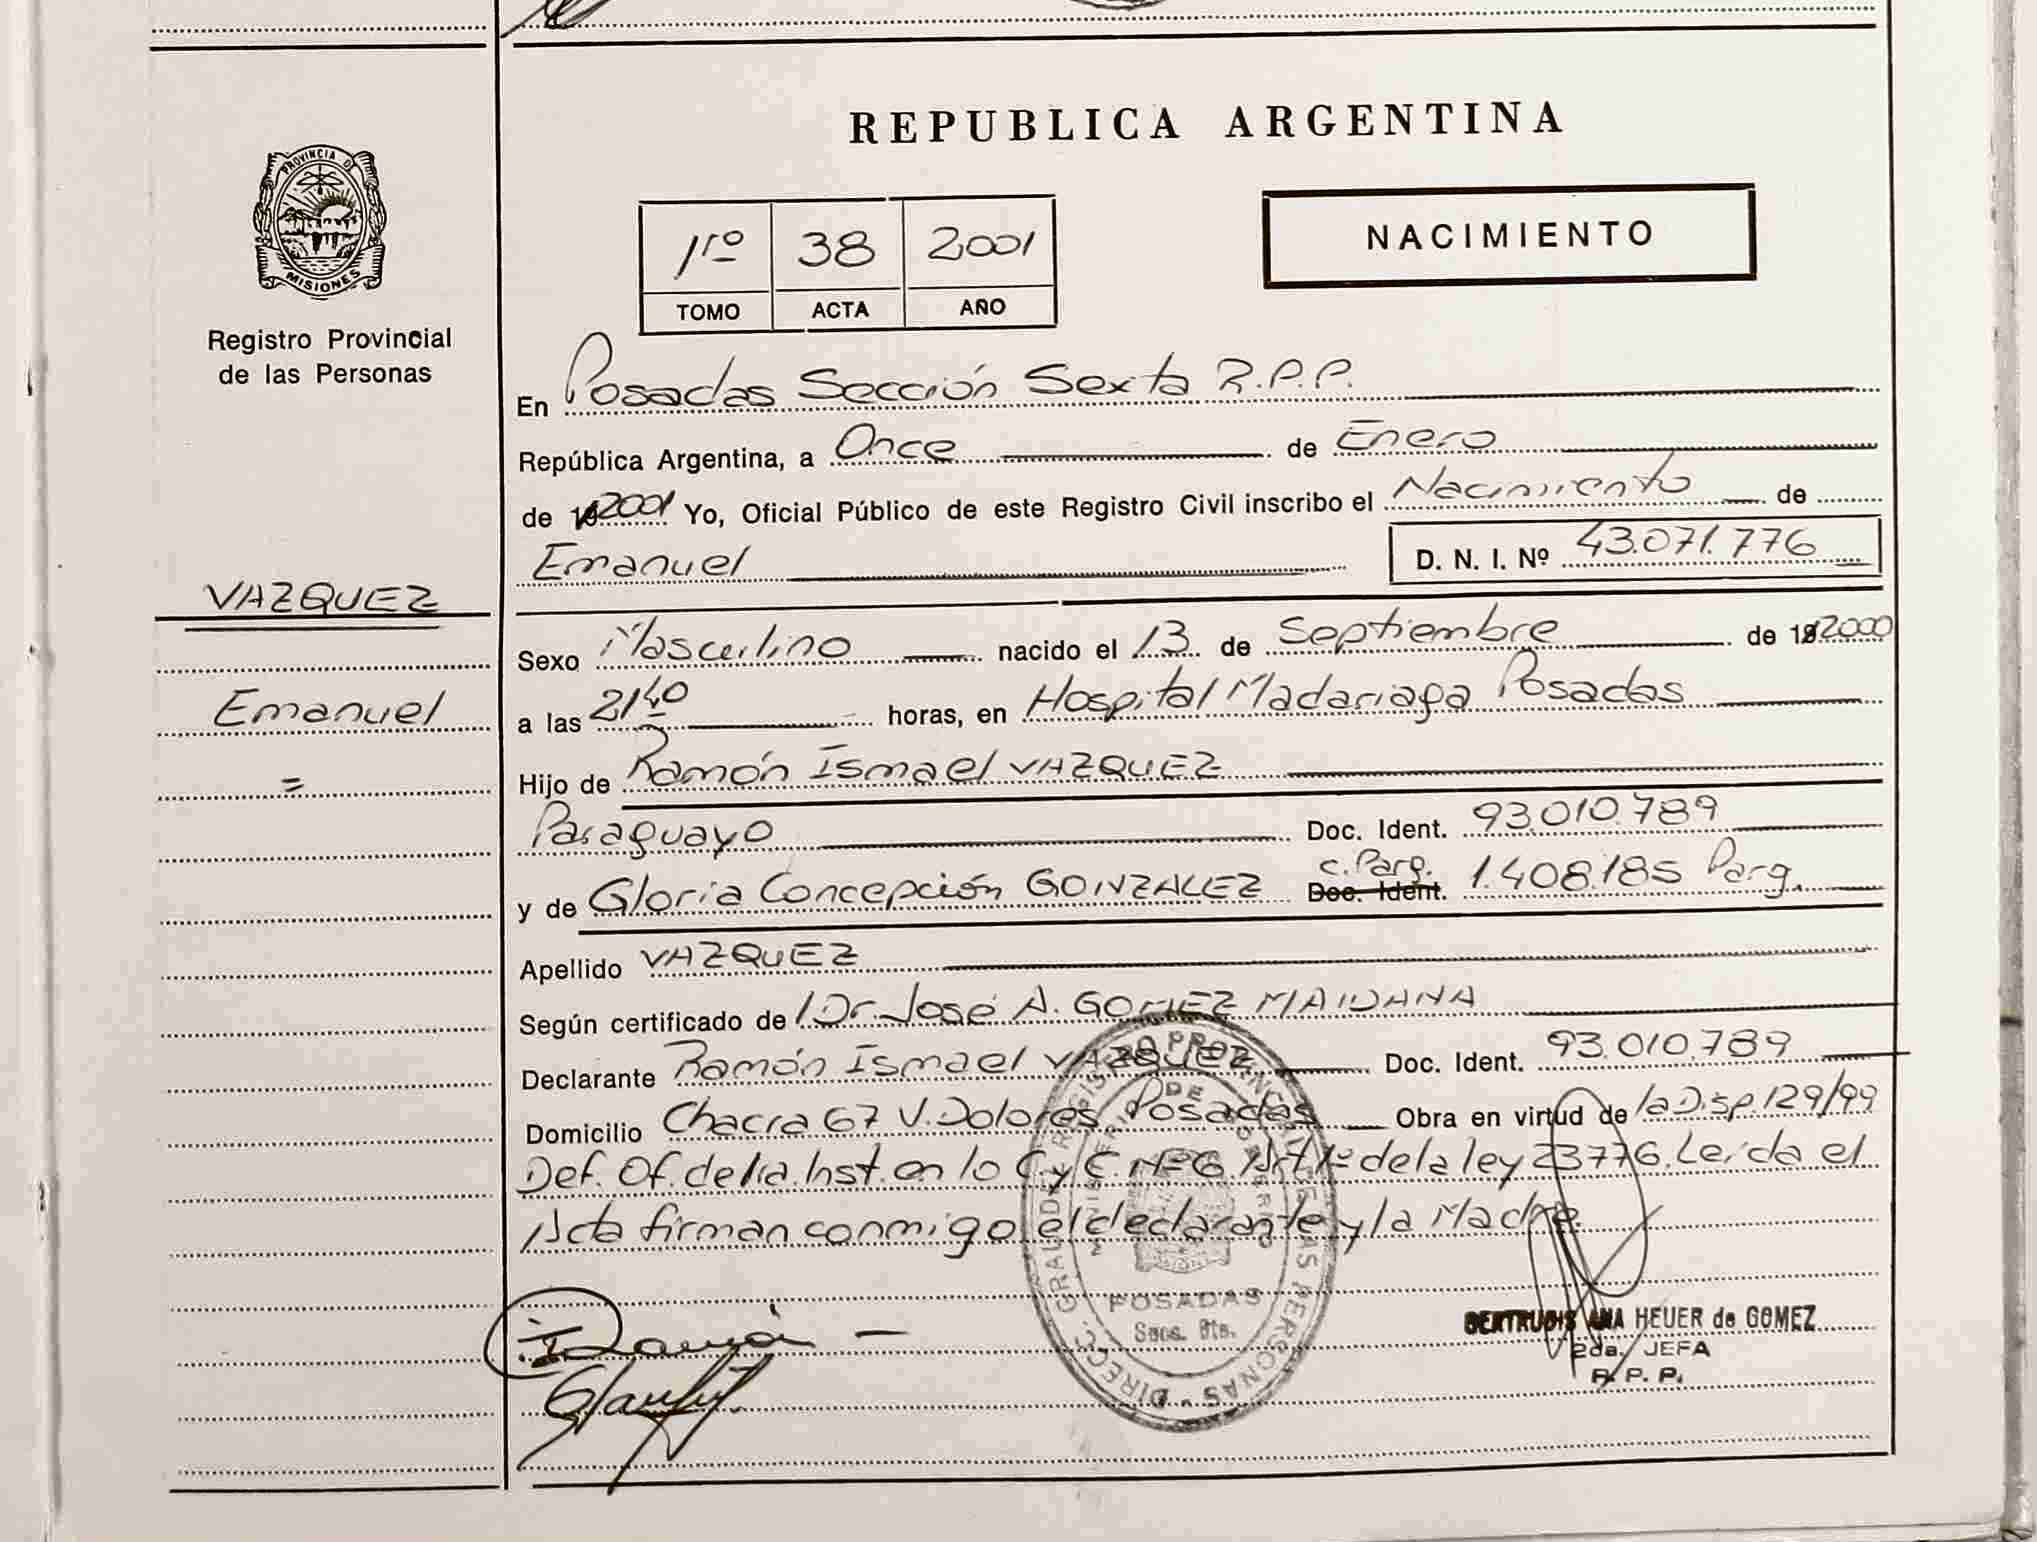 REPUBLICA ARGENTINA
PROVINCIA DE
MISIONES
Registro Provincial
de las Personas
1ro 38 2001
TOMO ACTA AÑO
NACIMIENTO
En Posadas Sección Sexta R.P.P.
República Argentina, a Once de Enero
de 2001 Yo, Oficial Público de este Registro Civil inscribo el Nacimiento de
Emanuel D. N. I. Nº 43.071.776
VAZQUEZ
Emanuel
=
Sexo Masculino nacido el 13 de Septiembre de 2000
a las 21 40 horas, en Hospital Madariaga Posadas
Hijo de Ramón Ismael VAZQUEZ
Paraguayo Doc. Ident. 93.010.789
y de Gloria Concepción GONZALEZ Doc. Ident. c. Parg. 1.408.185 Parg.
Apellido VAZQUEZ
Según certificado de Dr. José A. GOMEZ MAIDANA
Declarante Ramón Ismael VAZQUEZ Doc. Ident. 93.010.789
Domicilio Chacra 67 V. Dolores, Posadas Obra en virtud de la Disp. 129/99
Def. Of. de 1ra. Inst. en lo C y C. Nº 6 Art 1º de la ley 23776. Leída el
Acta firman conmigo el declarante y la Madre.
DIRECC. GRAL. DE REGISTRO PROVINCIAL DE LAS PERSONAS
MINISTERIO DE GOBIERNO
POSADAS
GERTRUDIS ANA HEUER de GOMEZ
2da. JEFA
R. P. P.